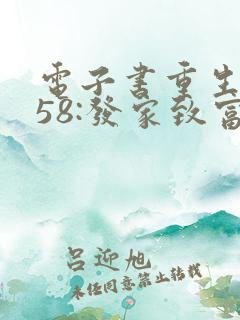 電子書重生
58:發家致富
呂迎旭
未经同意禁止转载